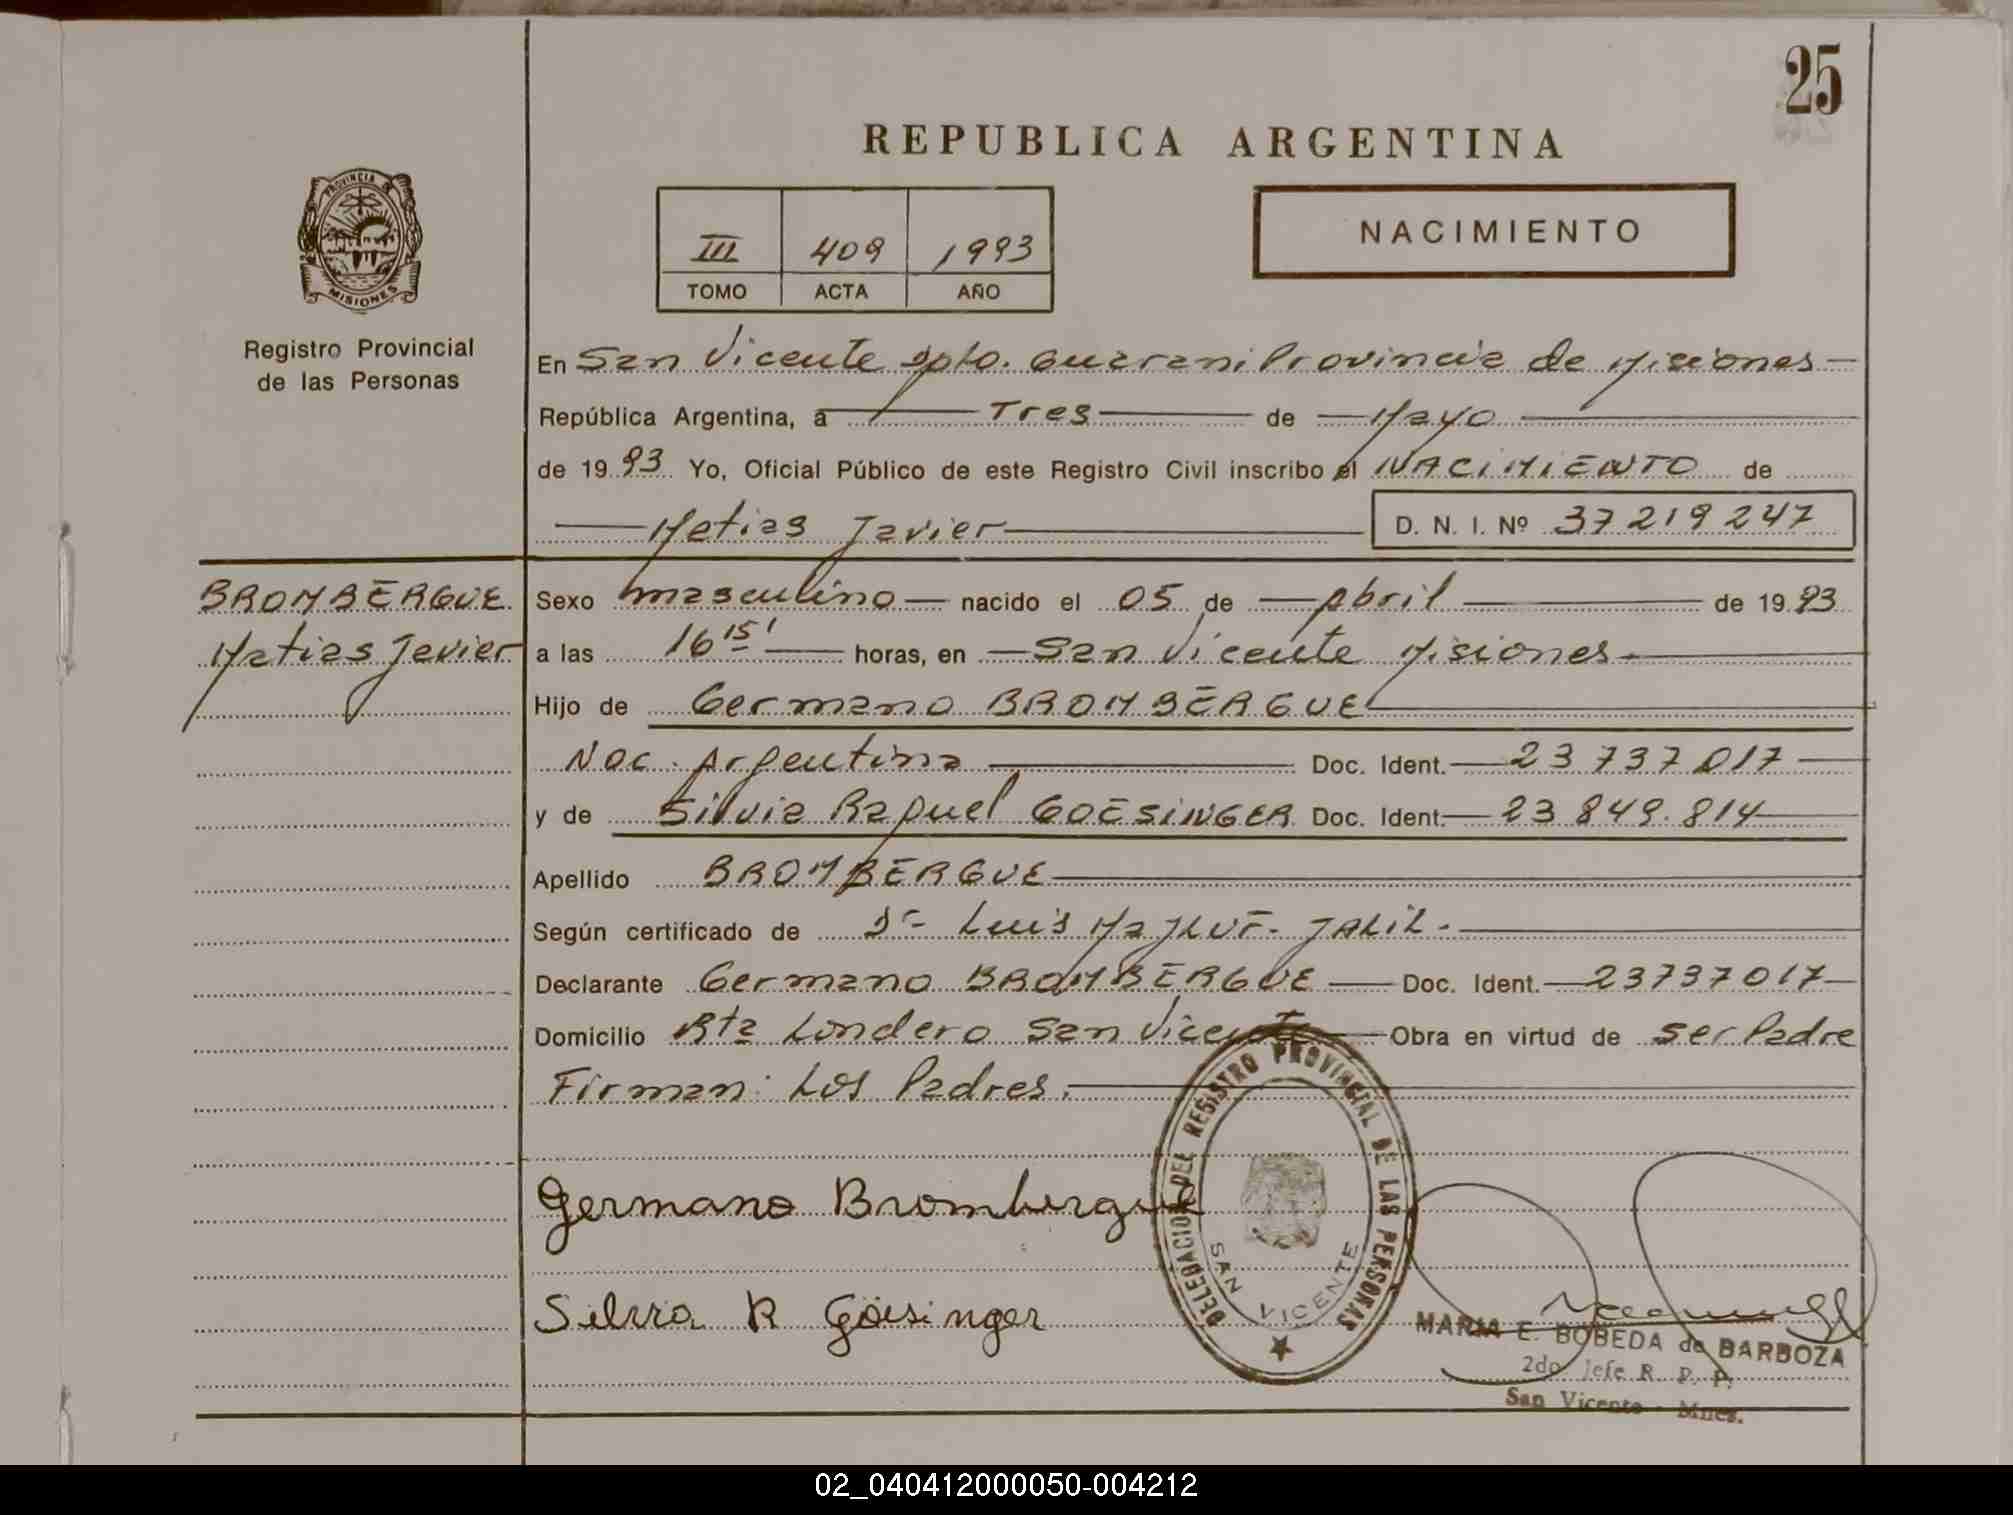 25
REPUBLICA ARGENTINA
PROVINCIA DE
MISIONES
Registro Provincial
de las Personas
III 409 1993
TOMO ACTA AÑO
NACIMIENTO
En San Vicente Dpto. Guarani Provincia de Misiones
República Argentina, a Tres de Mayo
de 1993 Yo, Oficial Público de este Registro Civil inscribo el NACIMIENTO de
Matias Javier D. N. I. Nº 37219247
BROMBERGUE
Matias Javier
Sexo masculino nacido el 05 de Abril de 1993
a las 16 15' horas, en San Vicente Misiones
Hijo de Germano BROMBERGUE
Nac. Argentina Doc. Ident. 23 737 017
y de Silvia Raquel GOESINGER Doc. Ident. 23 849.814
Apellido BROMBERGUE
Según certificado de Dr Luis JALIL.
Declarante Germano BROMBERGUE Doc. Ident. 23737017
Domicilio Rta Londero San Vicente Obra en virtud de ser Padre
Firman: Los Padres.
Germano Brombergue
Silvia R Göesinger
DELEGACION DEL REGISTRO PROVINCIAL DE LAS PERSONAS
SAN VICENTE
MARIA E. BOBEDA de BARBOZA
2do Jefe R. P. P.
San Vicente - Mnes.
02_040412000050-004212